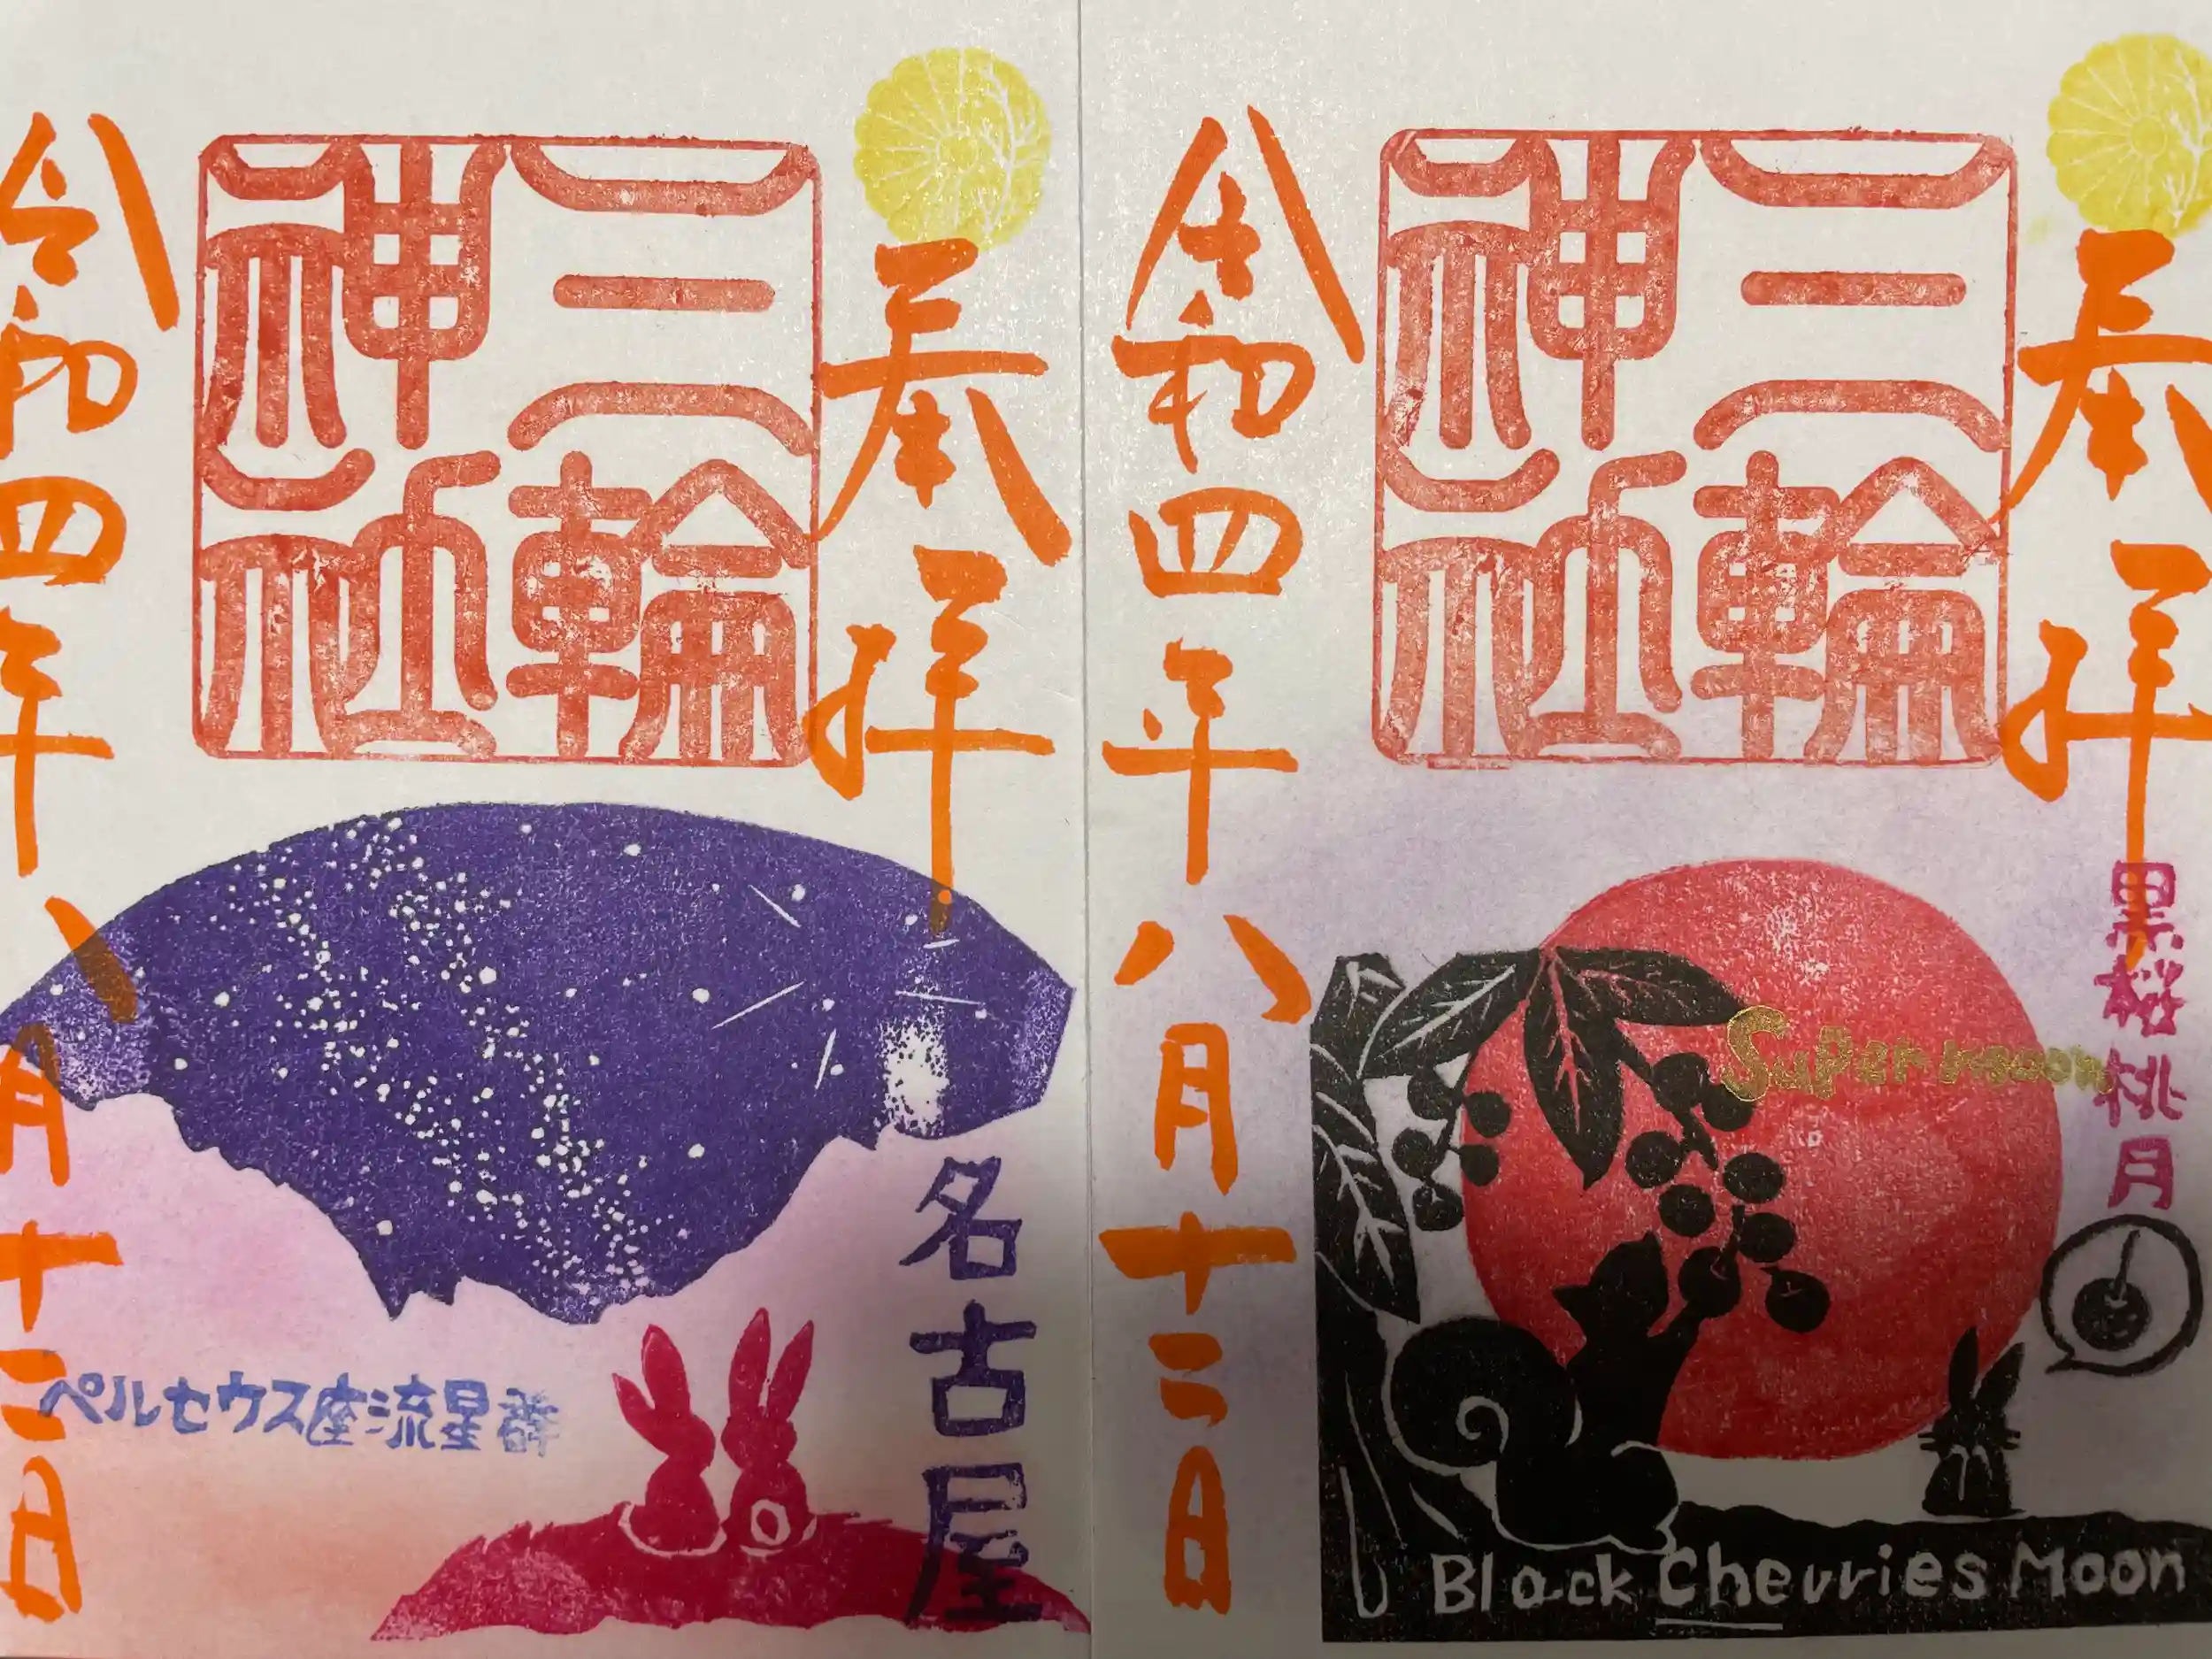 奉拝
三輪
神社
黒桜桃月
Super moon
令和四年八月十二日
Black Cherries Moon
奉拝
三輪
神社
名古屋
ペルセウス座流星群
令和四年八月十二日